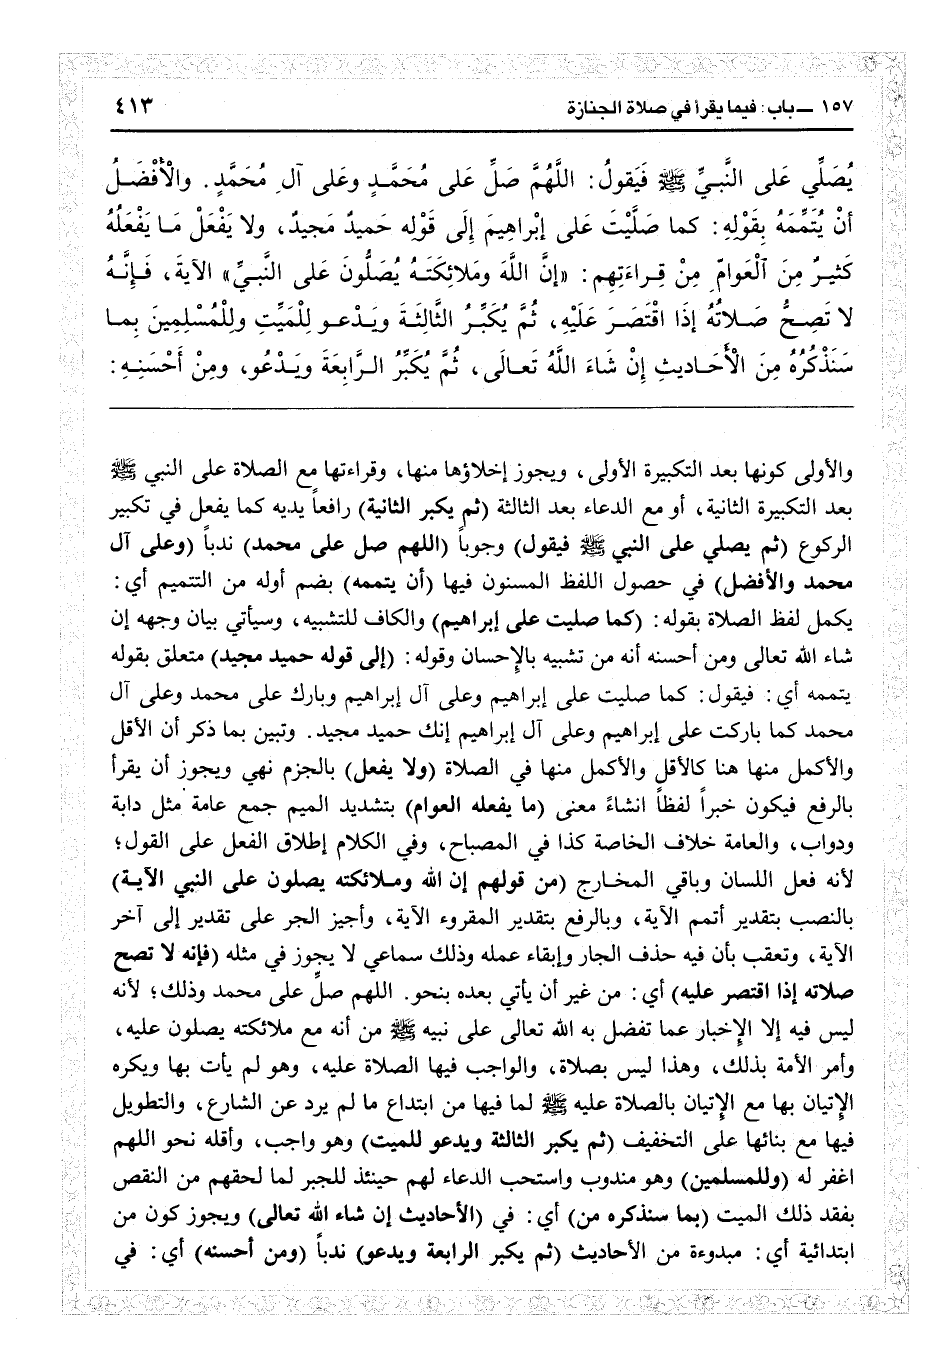 ١٥٧ ــ باب: فيما يقرأ في صلاة الجنازة ٤١٣
يُصَلِّي عَلى النَّبيِّ ﷺ فَيَقولُ: اللَّهُمَّ صَلِّ عَلى مُحَمَّدٍ وعَلى آلِ مُحَمَّدٍ. والْأَفْضَلُ
أنْ يُتَمِّمَهُ بِقَوْلِهِ: كما صَلَّيْتَ عَلى إبْراهِيمَ إلَى قَوْلِه حَميدٌ مَجيدٌ، ولا يَفْعَل مَا يَفْعَلُهُ
كَثيرٌ مِنَ ٱلْعَوامِّ مِنْ قِراءَتِهِم: «إنَّ اللَّهَ ومَلائِكَتَهُ يُصَلُّونَ عَلى النَّبيِّ» الآيةَ، فَإنَّهُ
لا تَصِحُّ صَلاتُهُ إذَا اقْتَصَرَ عَلَيْهِ، ثُمَّ يُكَبِّرُ الثَّالِثَةَ ويَدْعو لِلْمَيِّتِ ولِلْمُسْلِمينَ بِما
سَنَذْكُرُهُ مِنَ الْأَحَاديثِ إنْ شَاءَ اللَّهُ تَعالَى، ثُمَّ يُكَبِّرُ الرَّابعَةَ ويَدْعُو، ومِنْ أَحْسَنِهِ:
والأولى كونها بعد التكبيرة الأولى، ويجوز إخلاؤها منها، وقراءتها مع الصلاة على النبي ﷺ
بعد التكبيرة الثانية، أو مع الدعاء بعد الثالثة (ثم يكبر الثانية) رافعاً يديه كما يفعل في تكبير
الركوع (ثم يصلي على النبي ﷺ فيقول) وجوباً (اللهم صل على محمد) ندباً (وعلى آل
محمد والأفضل) في حصول اللفظ المسنون فيها (أن يتممه) بضم أوله من التتميم أي:
يكمل لفظ الصلاة بقوله: (كما صليت على إبراهيم) والكاف للتشبيه، وسيأتي بيان وجهه إن
شاء الله تعالى ومن أحسنه أنه من تشبيه بالإحسان وقوله: (إلى قوله حميد مجيد) متعلق بقوله
يتممه أي: فيقول: كما صليت على إبراهيم وعلى آل إبراهيم وبارك على محمد وعلى آل
محمد كما باركت على إبراهيم وعلى آل إبراهيم إنك حميد مجيد. وتبين بما ذكر أن الأقل
والأكمل منها هنا كالأقل والأكمل منها في الصلاة (ولا يفعل) بالجزم نهي ويجوز أن يقرأ
بالرفع فيكون خبراً لفظاً انشاءً معنى (ما يفعله العوام) بتشديد الميم جمع عامة مثل دابة
ودواب، والعامة خلاف الخاصة كذا في المصباح، وفي الكلام إطلاق الفعل على القول؛
لأنه فعل اللسان وباقي المخارج (من قولهم إن الله وملائكته يصلون على النبي الآية)
بالنصب بتقدير أتمم الآية، وبالرفع بتقدير المقروء الآية، وأجيز الجر على تقدير إلى آخر
الآية، وتعقب بأن فيه حذف الجار وإبقاء عمله وذلك سماعي لا يجوز في مثله (فإنه لا تصح
صلاته إذا اقتصر عليه) أي: من غير أن يأتي بعده بنحو. اللهم صلِّ على محمد وذلك؛ لأنه
ليس فيه إلا الإخبار عما تفضل به الله تعالى على نبيه ﷺ من أنه مع ملائكته يصلون عليه،
وأمر الأمة بذلك، وهذا ليس بصلاة، والواجب فيها الصلاة عليه، وهو لم يأت بها ويكره
الإتيان بها مع الإتيان بالصلاة عليه ﷺ لما فيها من ابتداع ما لم يرد عن الشارع، والتطويل
فيها مع بنائها على التخفيف (ثم يكبر الثالثة ويدعو للميت) وهو واجب، وأقله نحو اللهم
اغفر له (وللمسلمين) وهو مندوب واستحب الدعاء لهم حينئذ للجبر لما لحقهم من النقص
بفقد ذلك الميت (بما سنذكره من) أي: في (الأحاديث إن شاء الله تعالى) ويجوز كون من
ابتدائية أي: مبدوءة من الأحاديث (ثم يكبر الرابعة ويدعو) ندباً (ومن أحسنه) أي: في